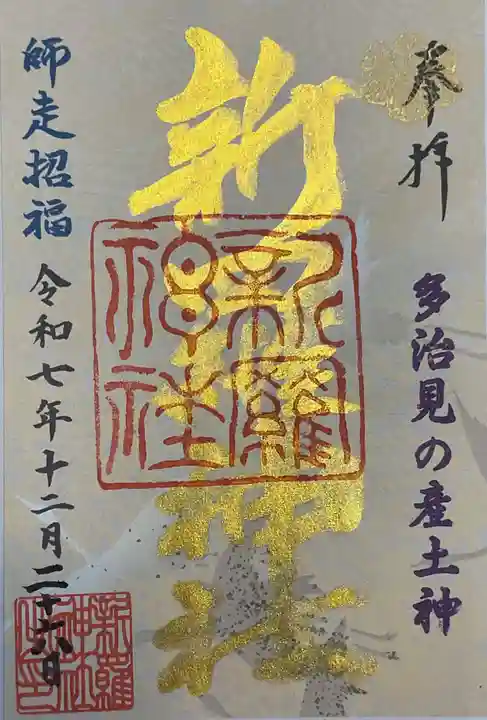 奉拝
多治見の産土神
新羅神社
新羅神社
師走招福
令和七年十二月二十六日
新羅神社